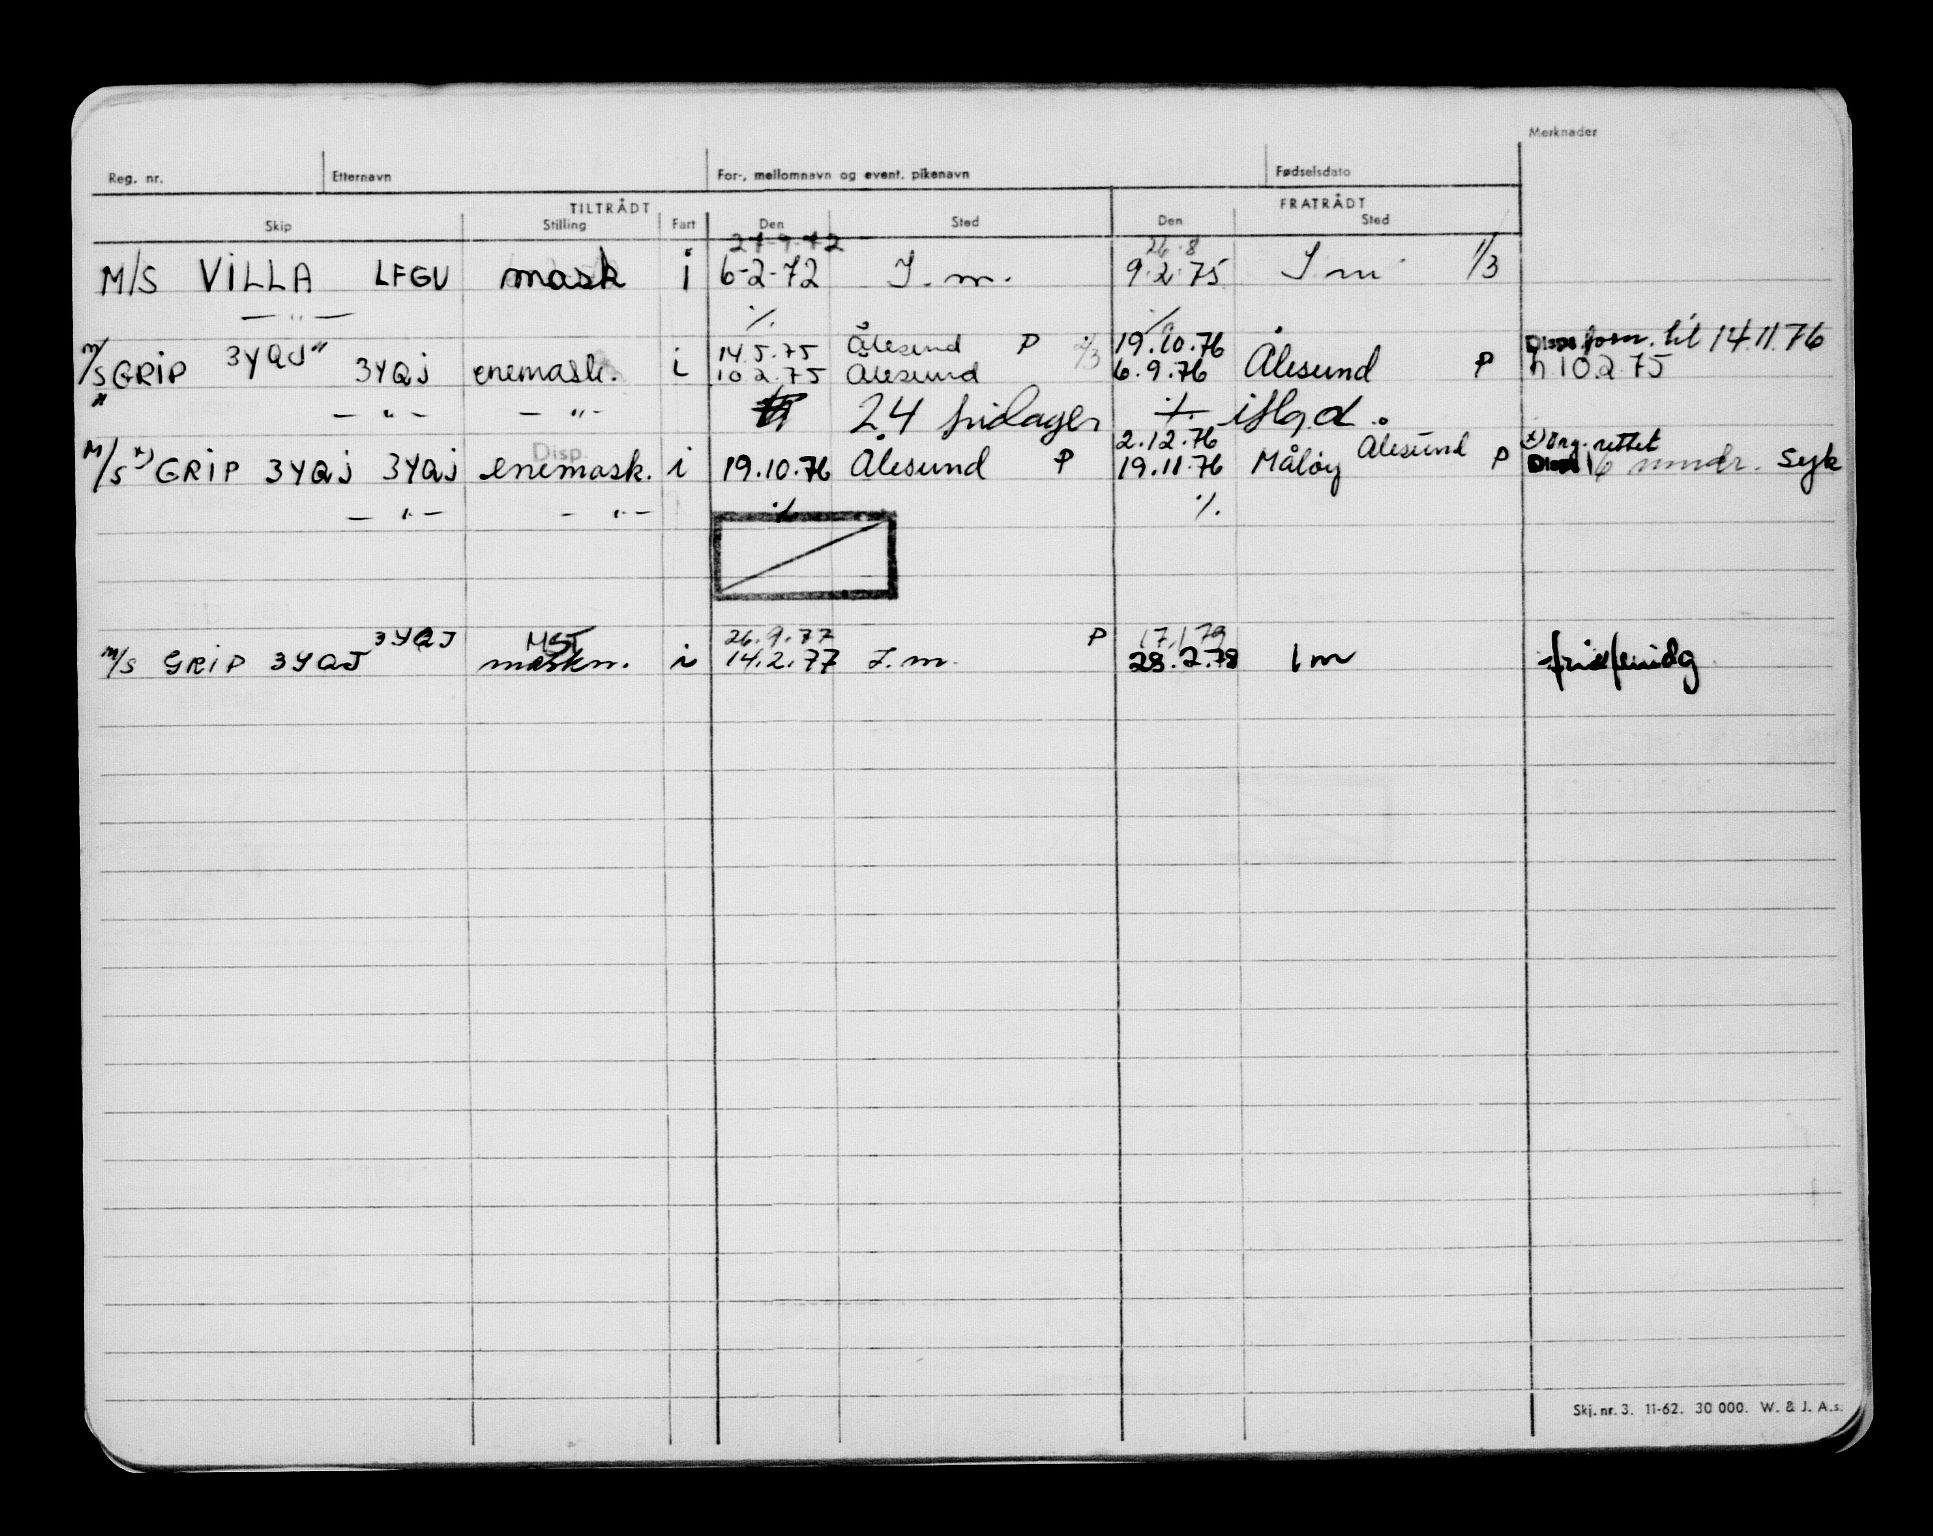 Merknader
Reg. nr. Etternavn For-, mellomnavn og event. pikenavn Fødselsdato
TILTRÅDT FRATRÅDT
Skip Stilling Fart Den Sted Den Sted
6-2-72 26.8
M/S VILLA LFGU mask i I.m. 9.2.75 I m 1/3
— " — ·/. ·/.
14.5.75 Ålesund P 19.10.76 Disp. forn. til 14.11.76
M/S GRIP 3YQJ 3YQJ enemask. i 10 2 75 Ålesund 6.9.76 Ålesund P h 10.2.75
" — " — — " — 24 fridager ·/. iflg d.
Disp. 2.12.76 Ålesund x) Org. rettet
M/S x) GRIP 3YQJ 3YQJ enemask. i 19.10.76 Ålesund P 19.11.76 Måløy P Disp 6 mndr. syk
— " — — " — ·/. ·/.
3YQJ MST 26.9.77 P 17/1 79
M/S GRIP 3YQJ maskn. i 14.2.77 I.m. 28.2.78 I m
Skj. nr. 3. 11-62. 30 000. W. & J. A.s.